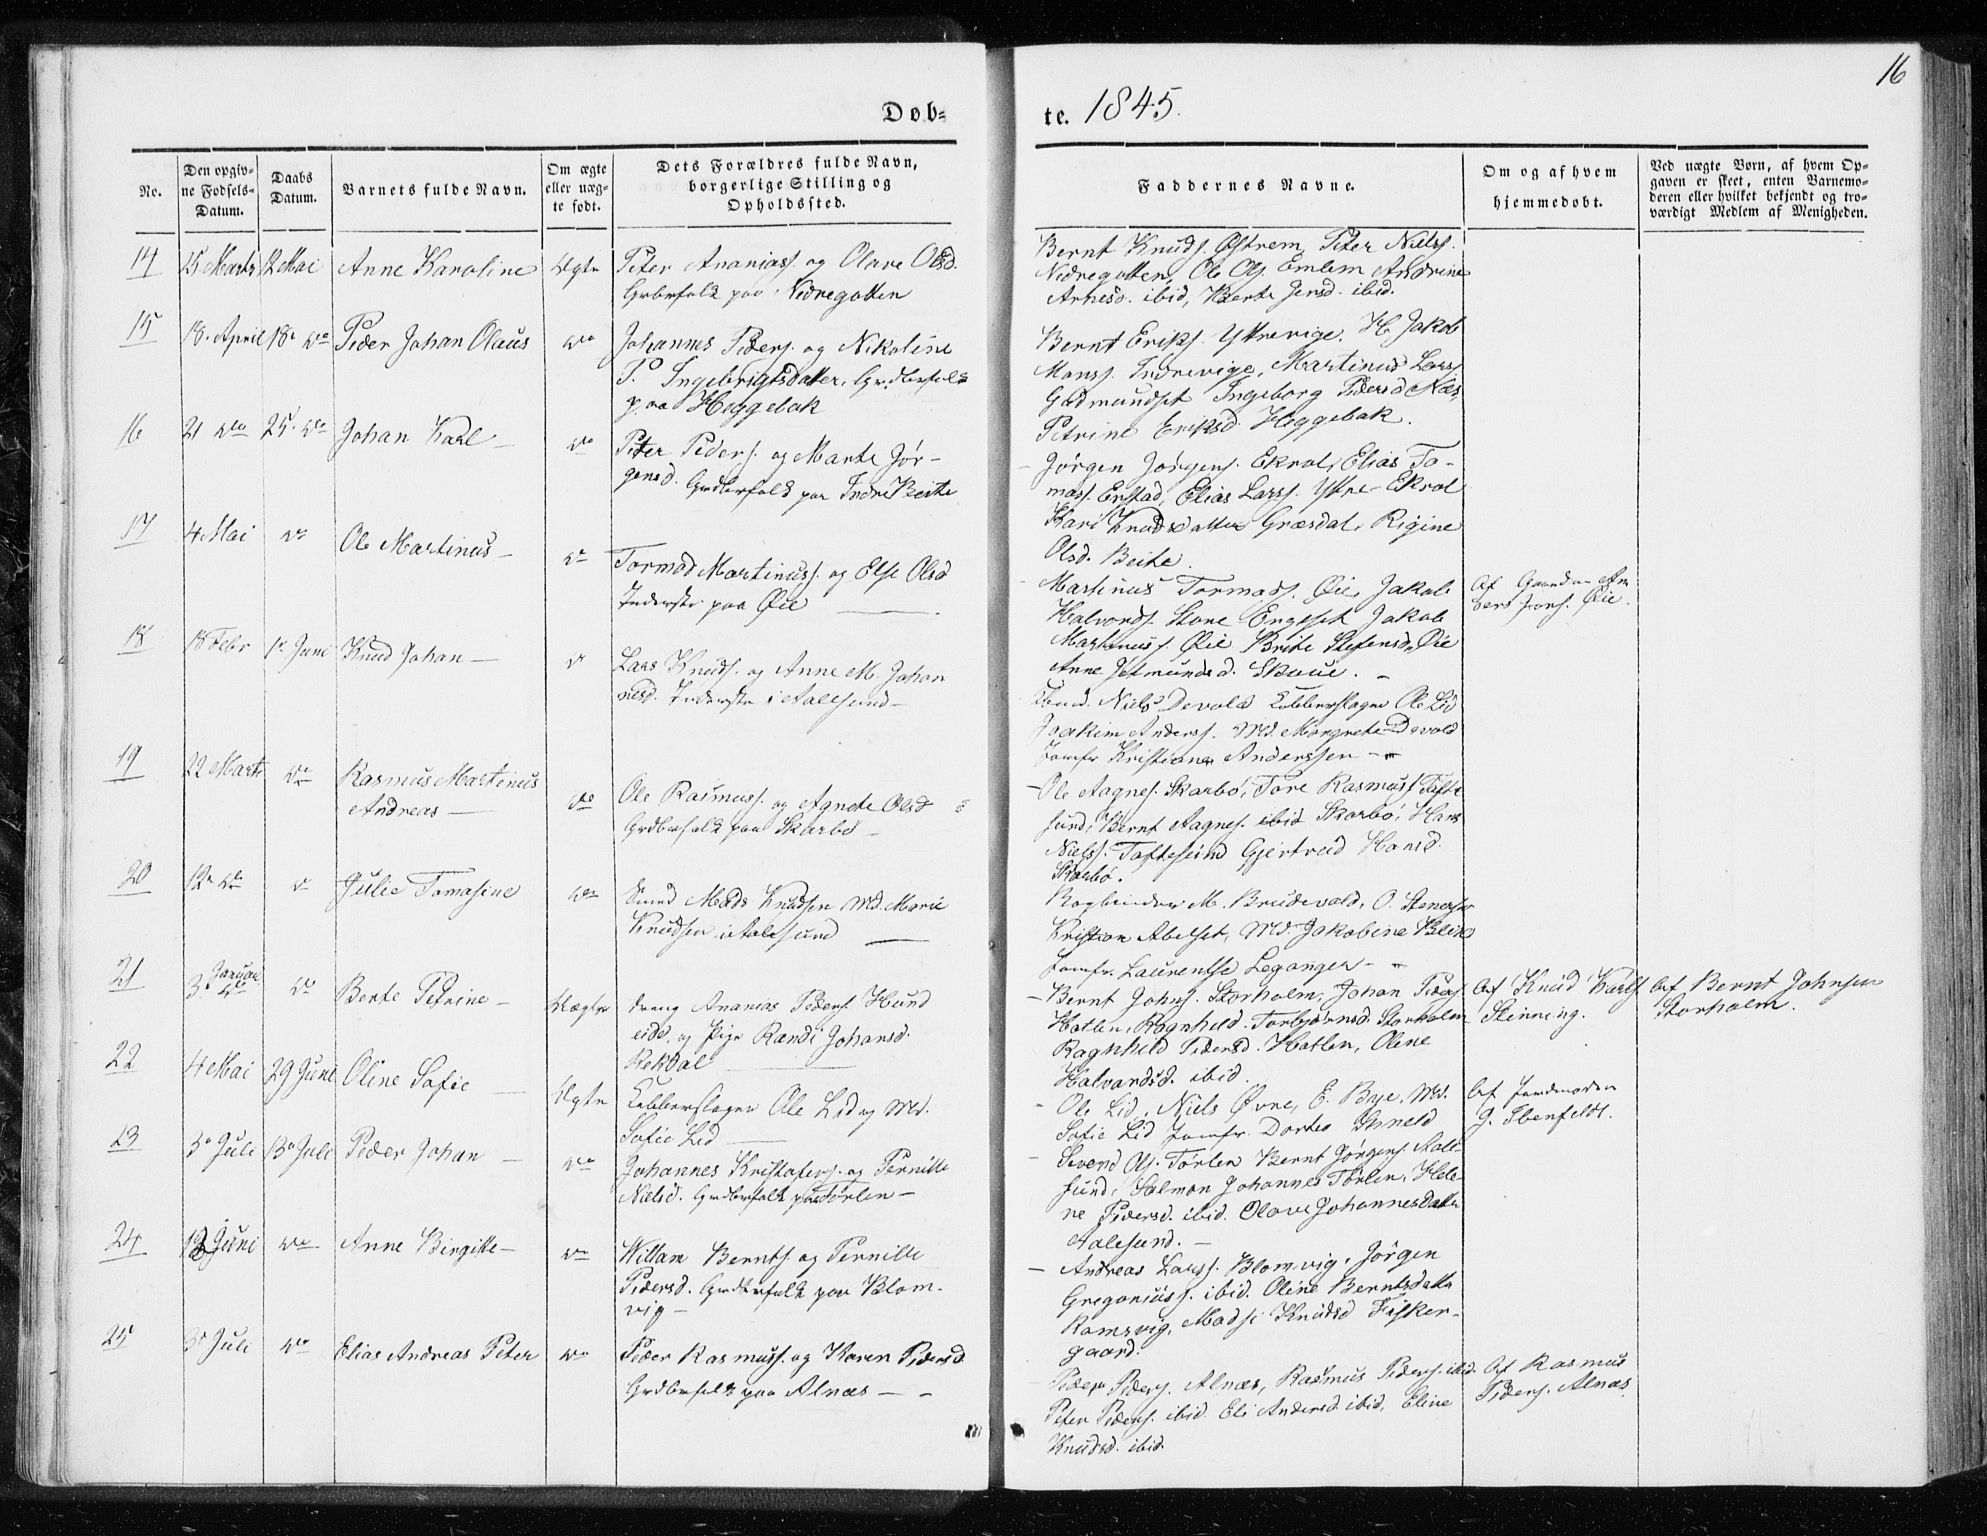 16
Døb-
te. 1845.
No.
Den opgiv-
ne Fødsels-
Datum.
Daabs
Datum.
Barnets fulde Navn.
Om ægte
eller uæg-
te født.
Dets Forældres fulde Navn,
borgerlige Stilling og
Opholdssted.
Faddernes Navne.
Om og af hvem
hjemmedøbt.
Ved uægte Børn, af hvem Op-
gaven er skeet, enten Barnemo-
deren eller hvilket bekjendt og tro-
værdigt Medlem af Menigheden.
14
25 Marts
12 Mai
Anne Karoline
Ægte
Peter Ananiass. og Olave Olsd.
Grbrfolk paa Nedregotten
Bernt Knuds. Østrem, Peter Niels.
Nedregotten, Ole Ols. Emlem Andrine
Arnesd. ibid, Berte Jensd. ibid.
15
18. April
18. do
Peder Johan Olaus
do
Johannes Peders. og Nikoline
P. Ingebrigtsdatter, Grdbrfolk
paa Heggebak
Bernt Eriks. Yttrevige. H. Jakob
Monss. Indrevige, Martinus Larss.
Gudmundset Ingeborg Pedersd Næs
Petrine Eriksd. Heggebak.
16
21 do
25. do
Johan Karl -
do
Peter Peders. og Marte Jør-
gensd. Grdbrfolk paa Indre Beite
- Jørgen Jørgens. Ekrol, Elias To-
mass. Erstad, Elias Larss. Yttre-Ekrol
Kari Knudsdatter Græsdal, Rigine
Olsd. Beite.
17
4 Mai
do
Ole Martinus -
do
Tormod Martinuss. og Else Olsd
Inderste paa Øie
- Martinus Tormods. Øie, Jakob
Halvords. Store Engeset Jakob
Martinuss Øie Brite Stefensd. Øie
Anne Jetmundsd. Skoue. -
Af Øie.
18
18 Febr
1. Juni
Knud Johan -
do
Lars Knuds. og Anne M. Johan
nesd. Inderste i Aalesund -
Niels Devold Kobberslager Ole Lid
Joakim Anderss. Md. Margrete Devold
Jomfr Kristiane Anderssen -
19
22 Marts
do
Rasmus Martinus
Andreas -
do
Ole Rasmuss. og Agnete Olsd
Grdbrfolk paa Skarbø -
- Ole Aagnes. Skarbø, Tore Rasmuss Tafte
sund, Bernt Aagnes. ibid Skarbø, Hans
Nielss. Taftesund Gjertrud Hansd.
Skarbø.
20
12 do
do
Julie Tomasine
do
Smed Mads Knudsen Md. Marie
Knudsen i Aalesund
Bogbinder M. Breidevald, O. Stenersen
Kristian Abelset, Md. Jakobine Blik
Jomfr. Laurentse Leganger -
21
3 Januar
do
Berte Petrine -
Uægte
dreng Ananias Peders. Hund
eide, og Pige Randi Johansd.
Rekdal
- Bernt Johns. Storholm, Johan Peders.
Hatlen, Ragnhild Torbjørnsd. Storholm
Ragnhild Pedersd. Hatlen, Olene
Halvardsd. ibid.
Af Knud Karls.
Slinning.
Af Bernt Johnsen
Storholm.
22
4 Mai
29 Juni
Oline Sofie -
Ægte
Kobberslager Ole Lid og Md.
Sofie Lid
- Ole Lid, Niels Øvre, E. Bye, Md.
Sofie Lid Jomfr. Dortea
Af Jordmoder
G. Ibenfeldt.
23
3 Juli
13 Juli
Peder Johan -
do
Johannes Kristofers. og Pernille
Nilsd. Grdbrfolk paa Tørlen -
- Sivend Ols. Tørlen Bernt Jørgens. Aale-
sund, Salmon Johannes Tørlen, Hele-
ne Pedersd. ibid. Olave Johannesdatter
Aalesund. -
24
Juni
do
Anne Birgitte -
do
Willam Bernts. og Pernille
Pedersd. Grdbrfolk paa Blom-
vig -
- Andreas Larss. Blomvig, Jørgen
Gregoriuss. ibid. Oline Berntsdatter
Ramsvig, Madsi Knudsd Fisker-
gaard.
25
3 Juli
do
Elias Andreas Peter
do
Peder Rasmuss. og Karen Pedersd
Grdbrfolk paa Alnæs -
- Peder Peders. Alnæs, Rasmus Peders. ibid.
Peter Peders. ibid. Eli Andersd. ibid, Eline
Knudsd. ibid.
Af Rasmus
Peders. Alnæs